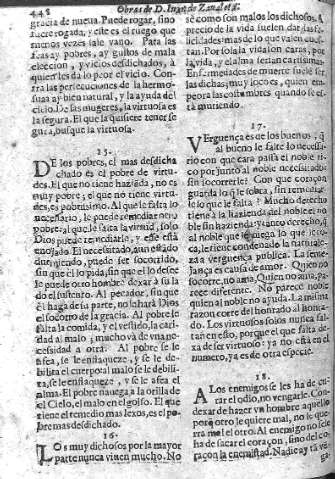 442
Obras de D. Iuan de Zaualeta.
gracia de nueua. Puede rogar, sino
fuere rogada, y este es el ruego que
menos vezes sale vano. Para las
feas ay pobres, ay gustos de mala
eleccion, y vicios desdichados, à
quien les da lo peor el vicio. Con
tra las persecuciones de la hermo-
sura ay bien natural, y la ayuda del
cielo. De las mugeres, la virtuosa es
la segura. El que la quisiere tener se
gura, busque la virtuosa.
15.
DE los pobres, el mas desdicha
chado es el pobre de virtu-
des. El que no tiene haziẽda, no es
muy pobre; el que no tiene virtu-
des, es pobrissimo. Al que le falta lo
necessario, le puede remediar otro
pobre: al que le falta la virtud, solo
Dios puede remediarle, y este està
enojado. El necesitado, aun estãdo
durmiendo, puede ser socorrido,
sin que èl lo pida, sin que èl lo desee
le puede otro hombre dexar à su la
do el sustento. Al pecador, sin que
èl haga de su parte, no le harà Dios
el socorro de la gracia. Al pobre le
falta la comida, y el vestido, la cari-
dad al malo; mucho và de vna ne-
cessidad à otra. Al pobre se le
afea, se le enflaquece, y se le de-
bilita el cuerpo: al malo se le debili-
ta, se le enflaqueze, y se le afea el
alma. El pobre nauega à la orilla de
el Cielo, el malo en el golfo. El que
tiene el remedio mas lexos, es el po
bre mas desdichado.
16.
LOs muy dichosos por la mayor
parte nunca viuen mucho. No
sè como son malos los dichosos. A
precio de la vida suelen dar las fe-
licidades: mas de lo que valen cues-
tan. Por sola la vida son caras, por
la vida, y el alma serian carissimas.
Enfermedades de muerte suelẽ ser
las dichas, muy locos es, quien em-
peora las costumbres quando se es-
tà muriendo.
17.
VErguença es de los buenos, q̃
al bueno le falte lo necessa-
rio: con que cara passa el noble ri-
co por junto al noble necessitado
sin socorrerle? Con que coraçon
guarda lo q̃ le sobra, sin remediar-
le lo que le falta? Mucho derecho
tiene à la hazienda del noble rico el no-
ble sin hazienda: y tanto derecho, q̃
al noble que niega lo que le to-
ca, le siente condenado la naturale-
za à verguença publica. La seme-
jança es causa de amor. Quien no
socorre, no ama. Quien no ama, pa-
rece diferente. No parece noble
quien al noble no ayuda. La misma
razon corre del honrado al honra-
do. Los virtuosos solos nunca fal-
tan en esso, porque el que falta de-
xa de ser virtuoso: ya no està en el
numero, ya es de otra especie.
18.
A Los enemigos se les ha de cu-
rar el odio, no vengarle. Con
dexar de hazer vn hombre aquello
porq̃ otro le quiere mal, no le que-
rra mal el otro. Al enemigo no le
ha de sacar el coraçon, sino del co-
raçon la enemistad. Nadie ay tan